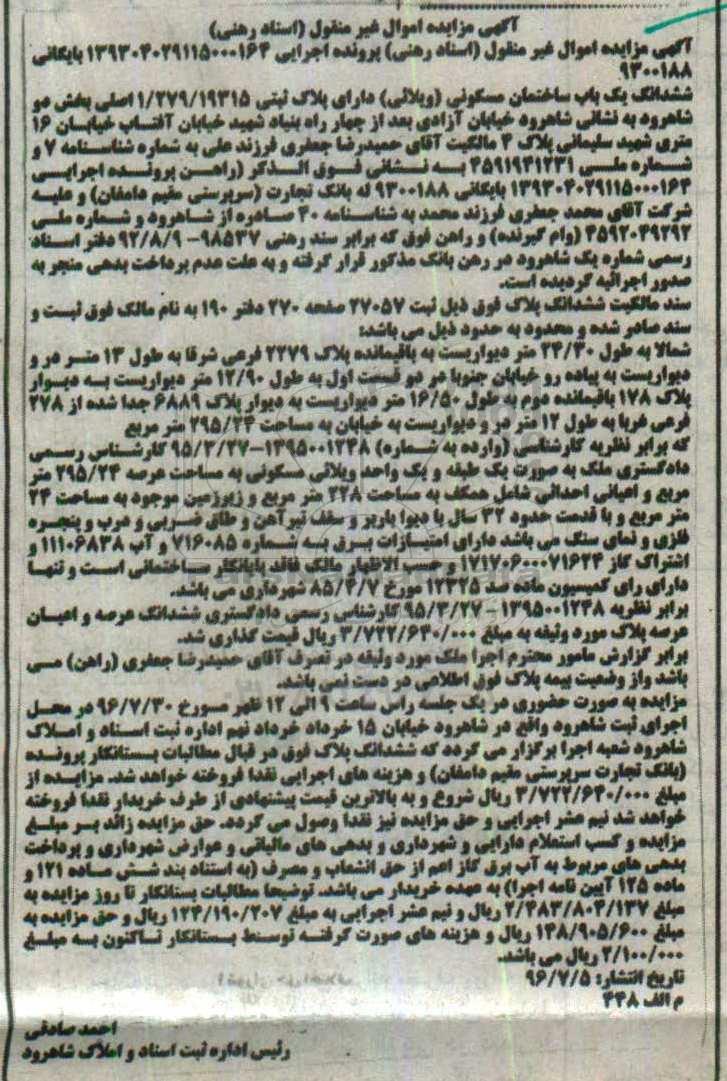 آگهی مزایده اموال غیر منقول (اسناد رهنی)
آگهی مزایده اموال غیر منقول (اسناد رهنی) پرونده اجرایی ۱۳۹۳۰۴۰۲۹۱۱۵۰۰۰۱۶۴ بایگانی
۹۳۰۰۱۸۸
ششدانگ یک باب ساختمان مسکونی (ویلائی) دارای پلاک ثبتی ۱/۲۷۹/۱۹۳۱۵ اصلی بخش دو
شاهرود به نشانی شاهرود خیابان آزادی بعد از چهار راه بنیاد شهید خیابان آفتاب خیابان ۱۶
متری شهید سلیمانی پلاک ۴ مالکیت آقای حمیدرضا جعفری فرزند علی به شماره شناسنامه ۷ و
شماره ملی ۴۵۹۱۹۴۱۲۳۱ به نشانی فوق الذکر (راهن پرونده اجرایی
۱۳۹۳۰۴۰۲۹۱۱۵۰۰۰۱۶۴ بایگانی ۹۳۰۰۱۸۸ له بانک تجارت (سرپرستی مقیم دامغان) و علیه
شرکت آقای محمد جعفری فرزند محمد به شناسنامه ۴۰ صادره از شاهرود و شماره ملی
۴۵۹۲۰۴۹۲۹۲ (وام گیرنده) و راهن فوق که برابر سند رهنی ۹۸۵۳۷- ۹۲/۸/۹ دفتر اسناد
رسمی شماره یک شاهرود در رهن بانک مذکور قرار گرفته و به علت عدم پرداخت بدهی منجر به
صدور اجرائیه گردیده است.
سند مالکیت ششدانگ پلاک فوق ذیل ثبت ۲۷۰۵۷ صفحه ۲۷۰ دفتر ۱۹۰ به نام مالک فوق ثبت و
سند صادر شده و محدود به حدود ذیل می باشد:
شمالا به طول ۲۴/۳۰ متر دیواریست به باقیمانده پلاک ۲۲۷۹ فرعی شرقا به طول ۱۳ متر در و
دیواریست به پیاده رو خیابان جنوبا در دو قسمت اول به طول ۱۲/۹۰ متر دیواریست به دیوار
پلاک ۱۷۸ باقیمانده دوم به طول ۱۶/۵۰ متر دیواریست به دیوار پلاک ۶۸۸۹ جدا شده از ۲۷۸
فرعی غربا به طول ۱۲ متر در و دیواریست به خیابان به مساحت ۲۹۵/۲۴ متر مربع
که برابر نظریه کارشناسی (وارده به شماره) ۱۳۹۵۰۰۱۲۴۸-۹۵/۳/۲۷ کارشناس رسمی
دادگستری ملک به صورت یک طبقه و یک واحد ویلائی مسکونی به مساحت عرصه ۲۹۵/۲۴ متر
مربع و اعیانی احداثی شامل همکف به مساحت ۲۲۸ متر مربع و زیرزمین موجود به مساحت ۲۴
متر مربع و با قدمت حدود ۳۲ سال با دیوا باربر و سقف تیرآهن و طاق ضربی و درب و پنجره
فلزی و نمای سنگ می باشد دارای امتیازات برق به شماره ۷۱۶۰۸۵ و آب ۱۱۱۰۶۸۳۸ و
اشتراک گاز ۱۷۱۷۰۶۰۰۰۷۱۶۲۴ و حسب الاظهار مالک فاقد پایانکار ساختمانی است و تنها
دارای رای کمیسیون ماده صد ۱۲۳۲۵ مورخ ۸۵/۴/۷ شهرداری می باشد.
برابر نظریه ۱۳۹۵۰۰۱۲۴۸- ۹۵/۳/۲۷ کارشناس رسمی دادگستری ششدانگ عرصه و اعیان
عرصه پلاک مورد وثیقه به مبلغ ۳/۷۲۲/۶۴۰/۰۰۰ ریال قیمت گذاری شد.
برابر گزارش مامور محترم اجرا ملک مورد وثیقه در تصرف آقای حمیدرضا جعفری (راهن) می
باشد واز وضعیت بیمه پلاک فوق اطلاعی در دست نمی باشد.
مزایده به صورت حضوری در یک جلسه راس ساعت ۹ الی ۱۲ ظهر مورخ ۹۶/۷/۳۰ در محل
اجرای ثبت شاهرود واقع در شاهرود خیابان ۱۵ خرداد خرداد نهم اداره ثبت اسناد و املاک
شاهرود شعبه اجرا برگزار می گردد که ششدانگ پلاک فوق در قبال مطالبات بستانکار پرونده
(بانک تجارت سرپرستی مقیم دامغان) و هزینه های اجرایی نقدا فروخته خواهد شد. مزایده از
مبلغ ۳/۷۲۲/۶۴۰/۰۰۰ ریال شروع و به بالاترین قیمت پیشنهادی از طرف خریدار نقدا فروخته
خواهد شد نیم عشر اجرایی و حق مزایده نیز نقدا وصول می گردد. حق مزایده زائد بر مبلغ
مزایده و کسب استعلام دارایی و شهرداری و بدهی های مالیاتی و عوارض شهرداری و پرداخت
بدهی های مربوط به آب برق گاز اعم از حق انشعاب و مصرف (به استناد بند شش ماده ۱۲۱ و
ماده ۱۲۵ آیین نامه اجرا) به عهده خریدار می باشد. توضیحا مطالبات بستانکار تا روز مزایده به
مبلغ ۲/۴۸۳/۸۰۴/۱۳۷ ریال و نیم عشر اجرایی به مبلغ ۱۲۴/۱۹۰/۲۰۷ ریال و حق مزایده به
مبلغ ۱۴۸/۹۰۵/۶۰۰ ریال و هزینه های صورت گرفته توسط بستانکار تاکنون به مبلغ
۲/۱۰۰/۰۰۰ ریال می باشد.
تاریخ انتشار: ۹۶/۷/۵
م الف ۴۴۸
احمد صادقی
رئیس اداره ثبت اسناد و املاک شاهرود